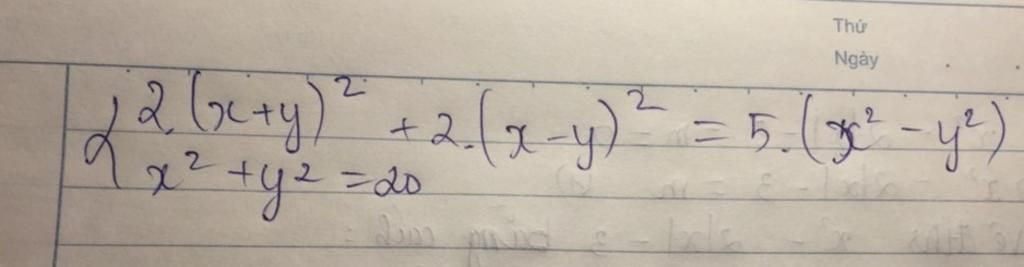 Thứ
Ngày
{ 2.(x+y)² + 2.(x-y)² = 5.(x² - y²)
x² + y² = 20